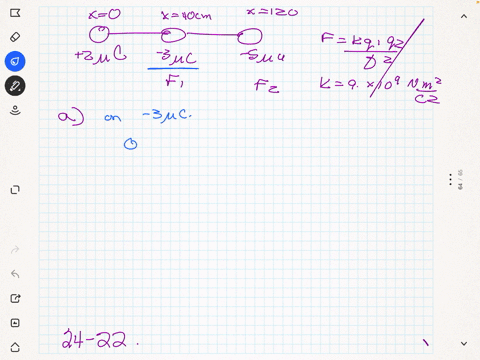 x=0 x=40cm x=120
+2μC -3μC -5μC
F₁ F₂
F = kq₁q₂
D²
k=9. x10⁹ Nm²
C2
a) on -3μC.
24-22.
64 / 65